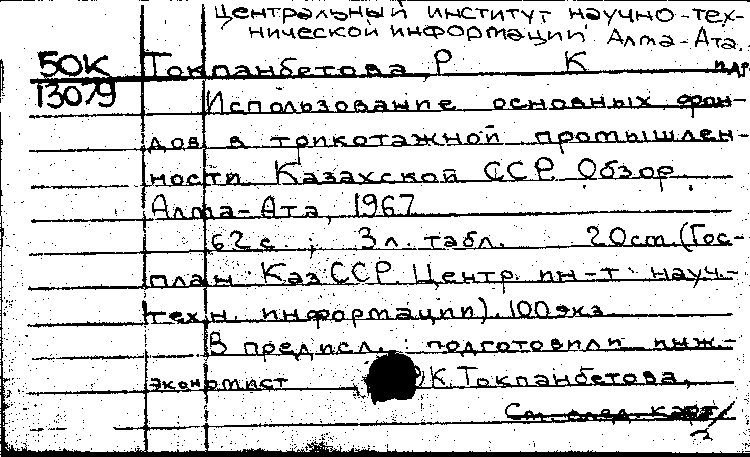 Центральный институт научно-тех-
нической информации Алма-Ата.
50К Токпанбетова, Р К и др
13079 Использование основных фон-
дов в трикотажной промышлен-
ности Казахской ССР. Обзор.
Алма-Ата, 1967
62 с. ; 3 л. табл. 20 см. (Гос-
план Каз ССР. Центр. ин-т науч.-
техн. информации). 100 экз.
В предисл. : подготовили инж.-
экономист Р К. Токпанбетова,
См. след. карт.